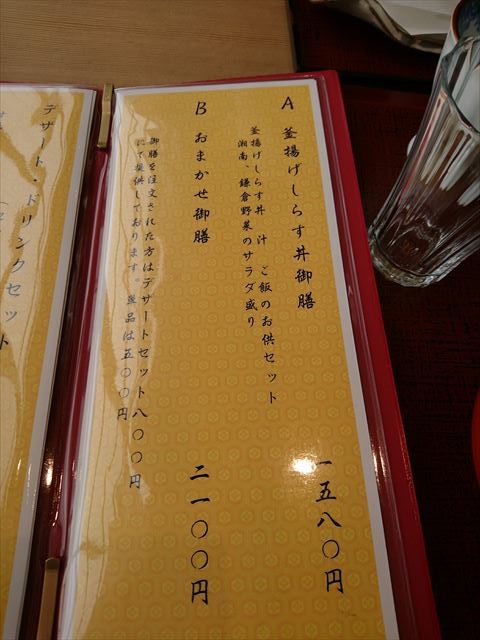 A 釜揚げしらす丼御膳 一五八〇円
釜揚げしらす丼 汁 ご飯のお供セット
湘南、鎌倉野菜のサラダ盛り
B おまかせ御膳 二一〇〇円
御膳を注文された方はデザートセット八〇〇円
にて提供しております。単品は五〇〇円
デザート・ドリンクセット